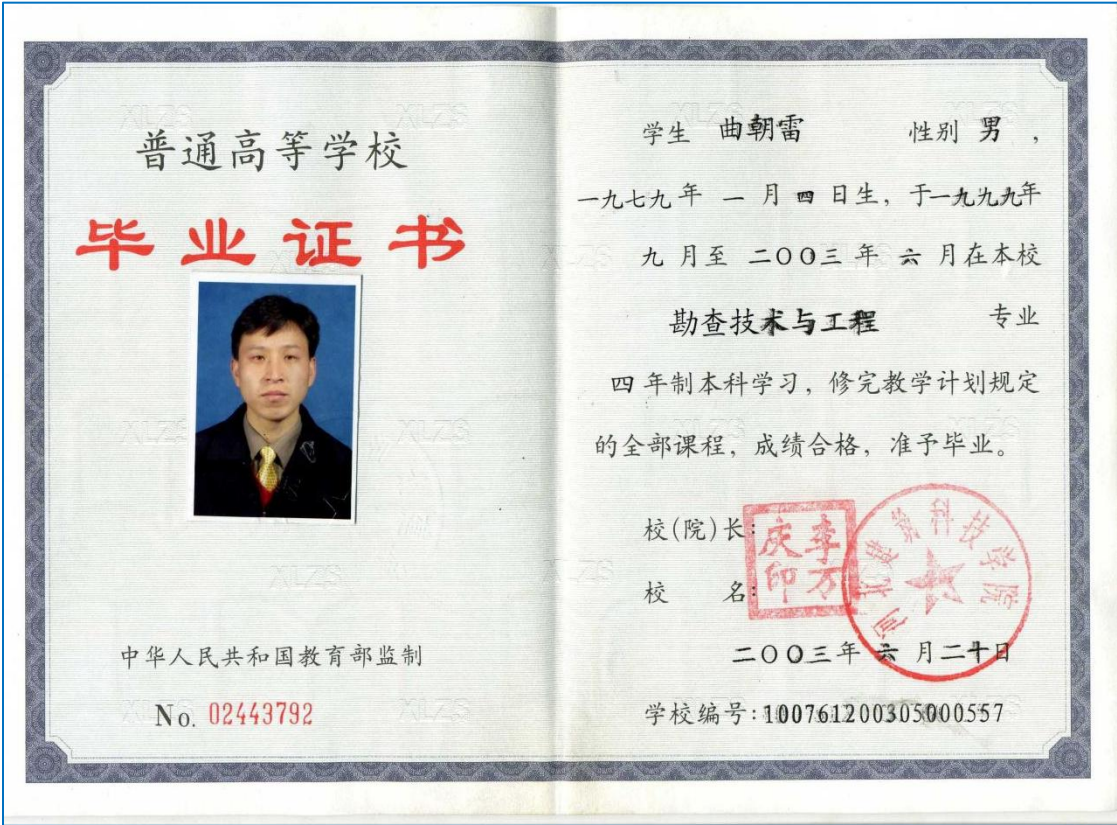 普通高等学校
毕业证书
中华人民共和国教育部监制
No. 02443792
学生 曲朝雷 性别 男，
一九七九年 一 月 四 日生，于一九九九年
九 月至 二〇〇三 年 六 月在本校
勘查技术与工程 专业
四 年制本科学习，修完教学计划规定
的全部课程，成绩合格，准予毕业。
校(院)长:
李万庆印
校 名:
河北建筑科技学院
二〇〇三年 六 月二十日
学校编号:100761200305000557
XLZS